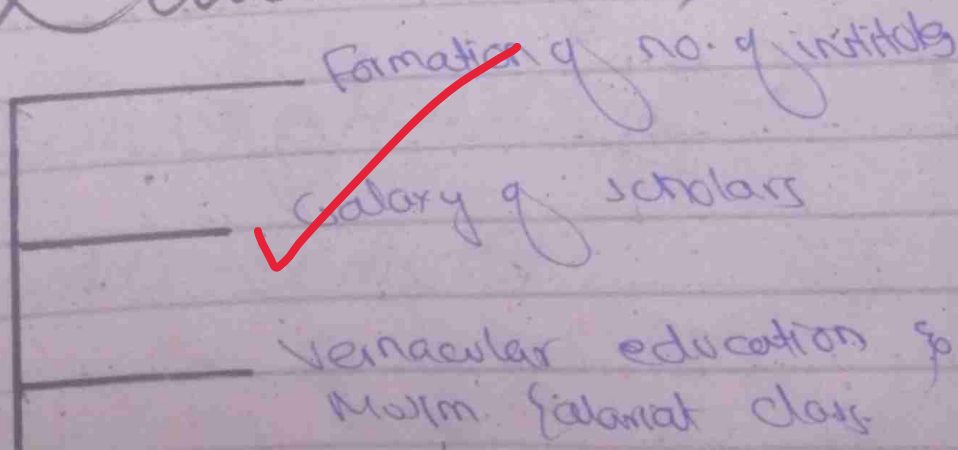 Formation of no. of institutes
Salary of scholars
Vernacular education &
class.